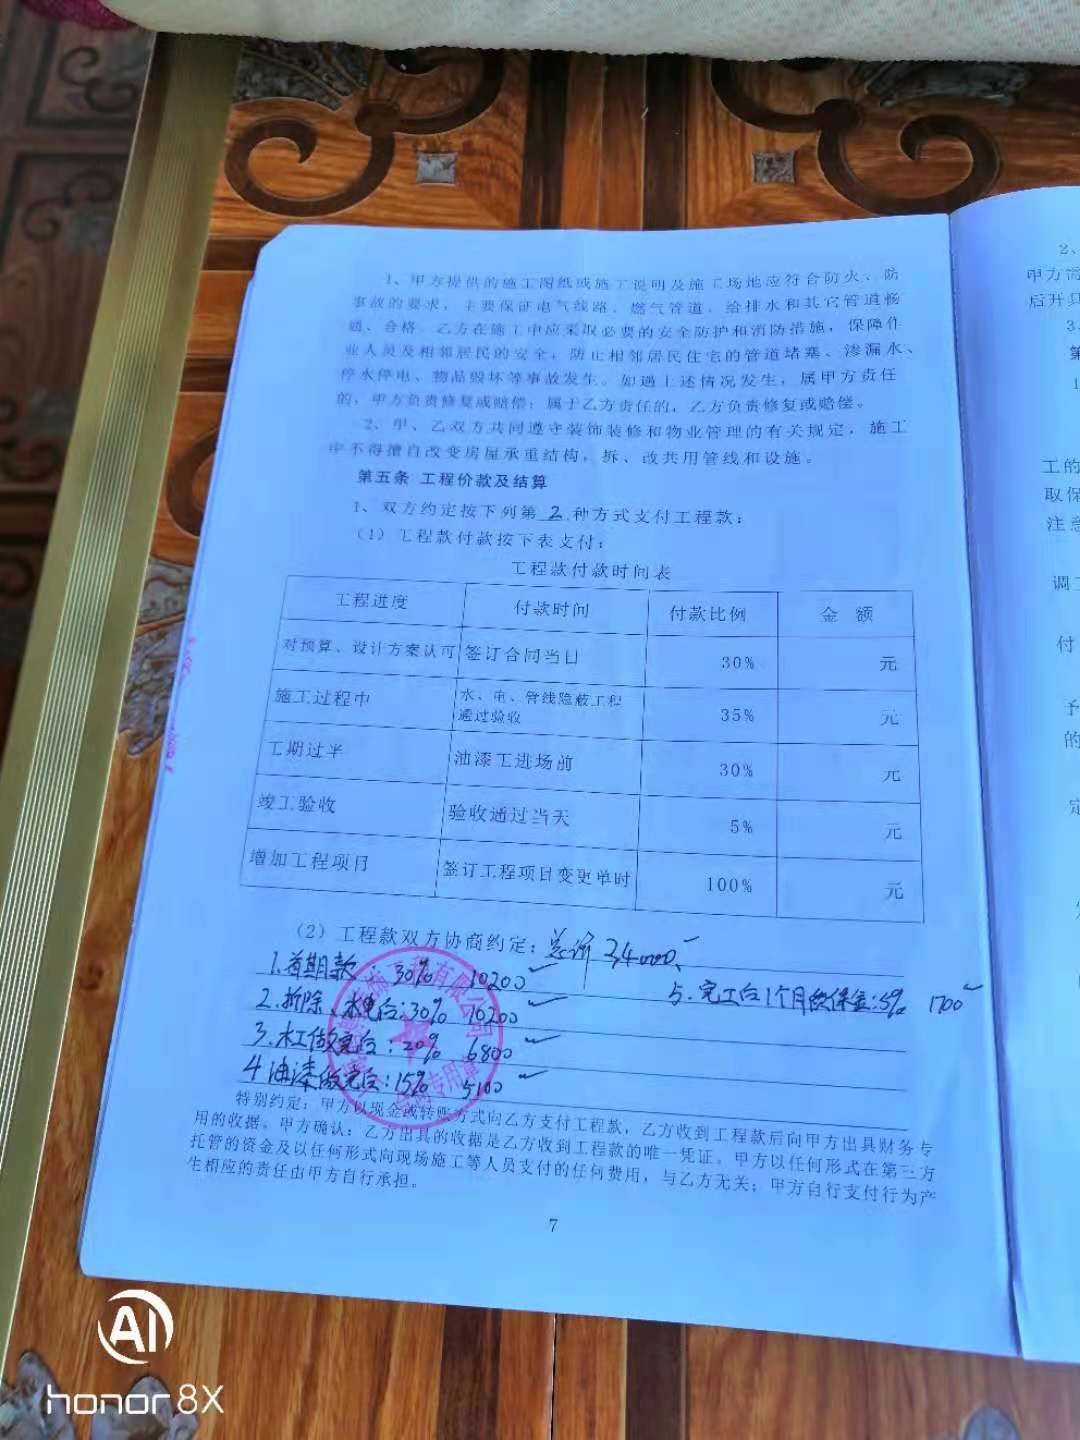 1、甲方提供的施工图纸或施工说明及施工场地应符合防火、防
事故的要求，主要保证电气线路、燃气管道、给排水和其它管道畅
通、合格。乙方在施工中应采取必要的安全防护和消防措施，保障作
业人员及相邻居民的安全，防止相邻居民住宅的管道堵塞、渗漏水、
停水停电、物品毁坏等事故发生。如遇上述情况发生，属甲方责任
的，甲方负责修复或赔偿；属于乙方责任的，乙方负责修复或赔偿。
2、甲、乙双方共同遵守装饰装修和物业管理的有关规定，施工
中不得擅自改变房屋承重结构，拆、改共用管线和设施。
第五条 工程价款及结算
1、双方约定按下列第 2 种方式支付工程款：
（1）工程款付款按下表支付：
工程款付款时间表
工程进度 付款时间 付款比例 金 额
对预算、设计方案认可 签订合同当日 30% 元
施工过程中 水、电、管线隐蔽工程
通过验收 35% 元
工期过半 油漆工进场前 30% 元
竣工验收 验收通过当天 5% 元
增加工程项目 签订工程项目变更单时 100% 元
（2）工程款双方协商约定：总价 34000
1.首期款：30% 10200
2.拆除、水电后：30% 10200
3.木工做完后：20% 6800
4 油漆做完后：15% 5100
5.完工后1个月 保金：5% 1700
特别约定：甲方以现金或转账方式向乙方支付工程款，乙方收到工程款后向甲方出具财务专
用的收据。甲方确认：乙方出具的收据是乙方收到工程款的唯一凭证。甲方以任何形式在第三方
托管的资金及以任何形式向现场施工等人员支付的任何费用，与乙方无关；甲方自行支付行为产
生相应的责任由甲方自行承担。
7
2、
甲方需
后开具
3
第
1
工的
取保
注意
调
付
予
的
定
AI
honor 8X